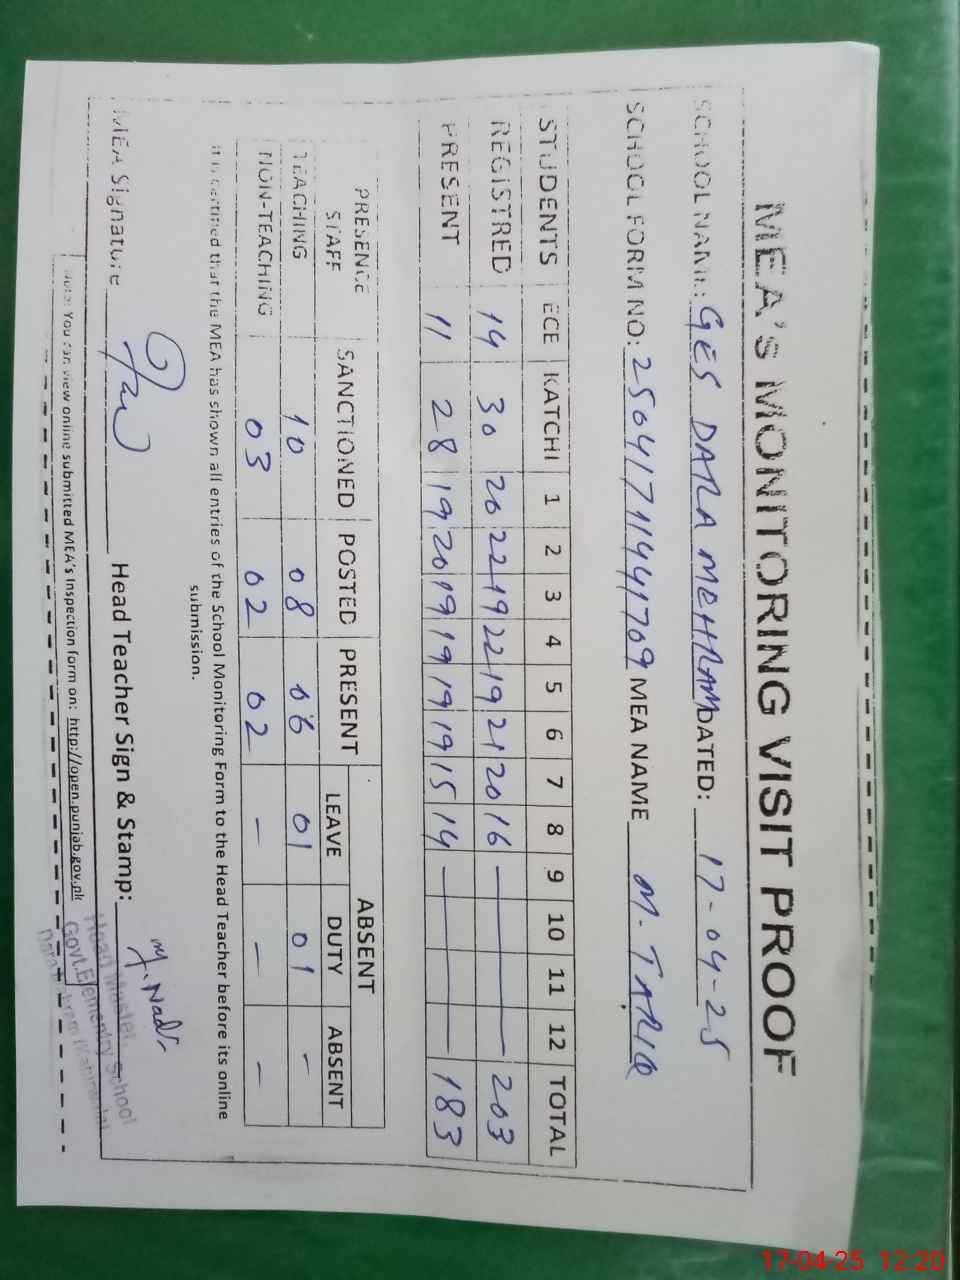 MEA'S MONITORING VISIT PROOF
SCHOOL NAME: GES DARA MEHRAM DATED: 17-04-25
SCHOOL FORM NO: 25041711441709 MEA NAME M. TARIQ
STUDENTS ECE KATCHI 1 2 3 4 5 6 7 8 9 10 11 12 TOTAL
REGISTRED 14 30 20 22 19 22 19 21 20 16 — 203
PRESENT 11 28 19 20 19 19 19 19 15 14 — 183
PRESENCE STAFF SANCTIONED POSTED PRESENT ABSENT
LEAVE DUTY ABSENT
TEACHING 10 08 06 01 01 -
NON-TEACHING 03 02 02 - - -
It is certified that the MEA has shown all entries of the School Monitoring Form to the Head Teacher before its online
submission.
MEA Signature Head Teacher Sign & Stamp:
Head Master
Govt. Elementry School
Note: You can view online submitted MEA's Inspection form on: http://open.punjab.gov.pk
17-04-25 12:20